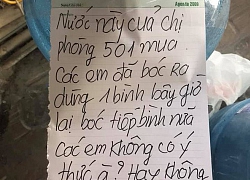 Nước này của chị
phòng 501 mua.
Các em đã bóc Ra
dùng 1 bình bây giờ
lại bóc tiếp bình nữa
Các em không có ý
thức à? Hay không